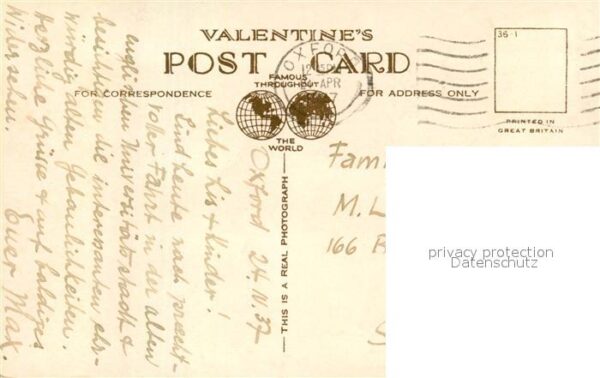 VALENTINE'S
POST CARD
FAMOUS
THROUGHOUT
THE
WORLD
FOR CORRESPONDENCE
FOR ADDRESS ONLY
OXFORD
APR
36-1
PRINTED IN
GREAT BRITAIN
THIS IS A REAL PHOTOGRAPH
Oxford 24.IV.37
Liebes Lis & Kinder!
Sind heute nach pracht-
voller Fahrt in der alten
englischen Universitätsstadt &
besichtigen die interessanten, ehr-
würdigen Gebäulichkeiten.
Herzliche Grüsse & auf baldiges
Wiedersehen.
Euer Max.
Fami
M. L
166
privacy protection
Datenschutz